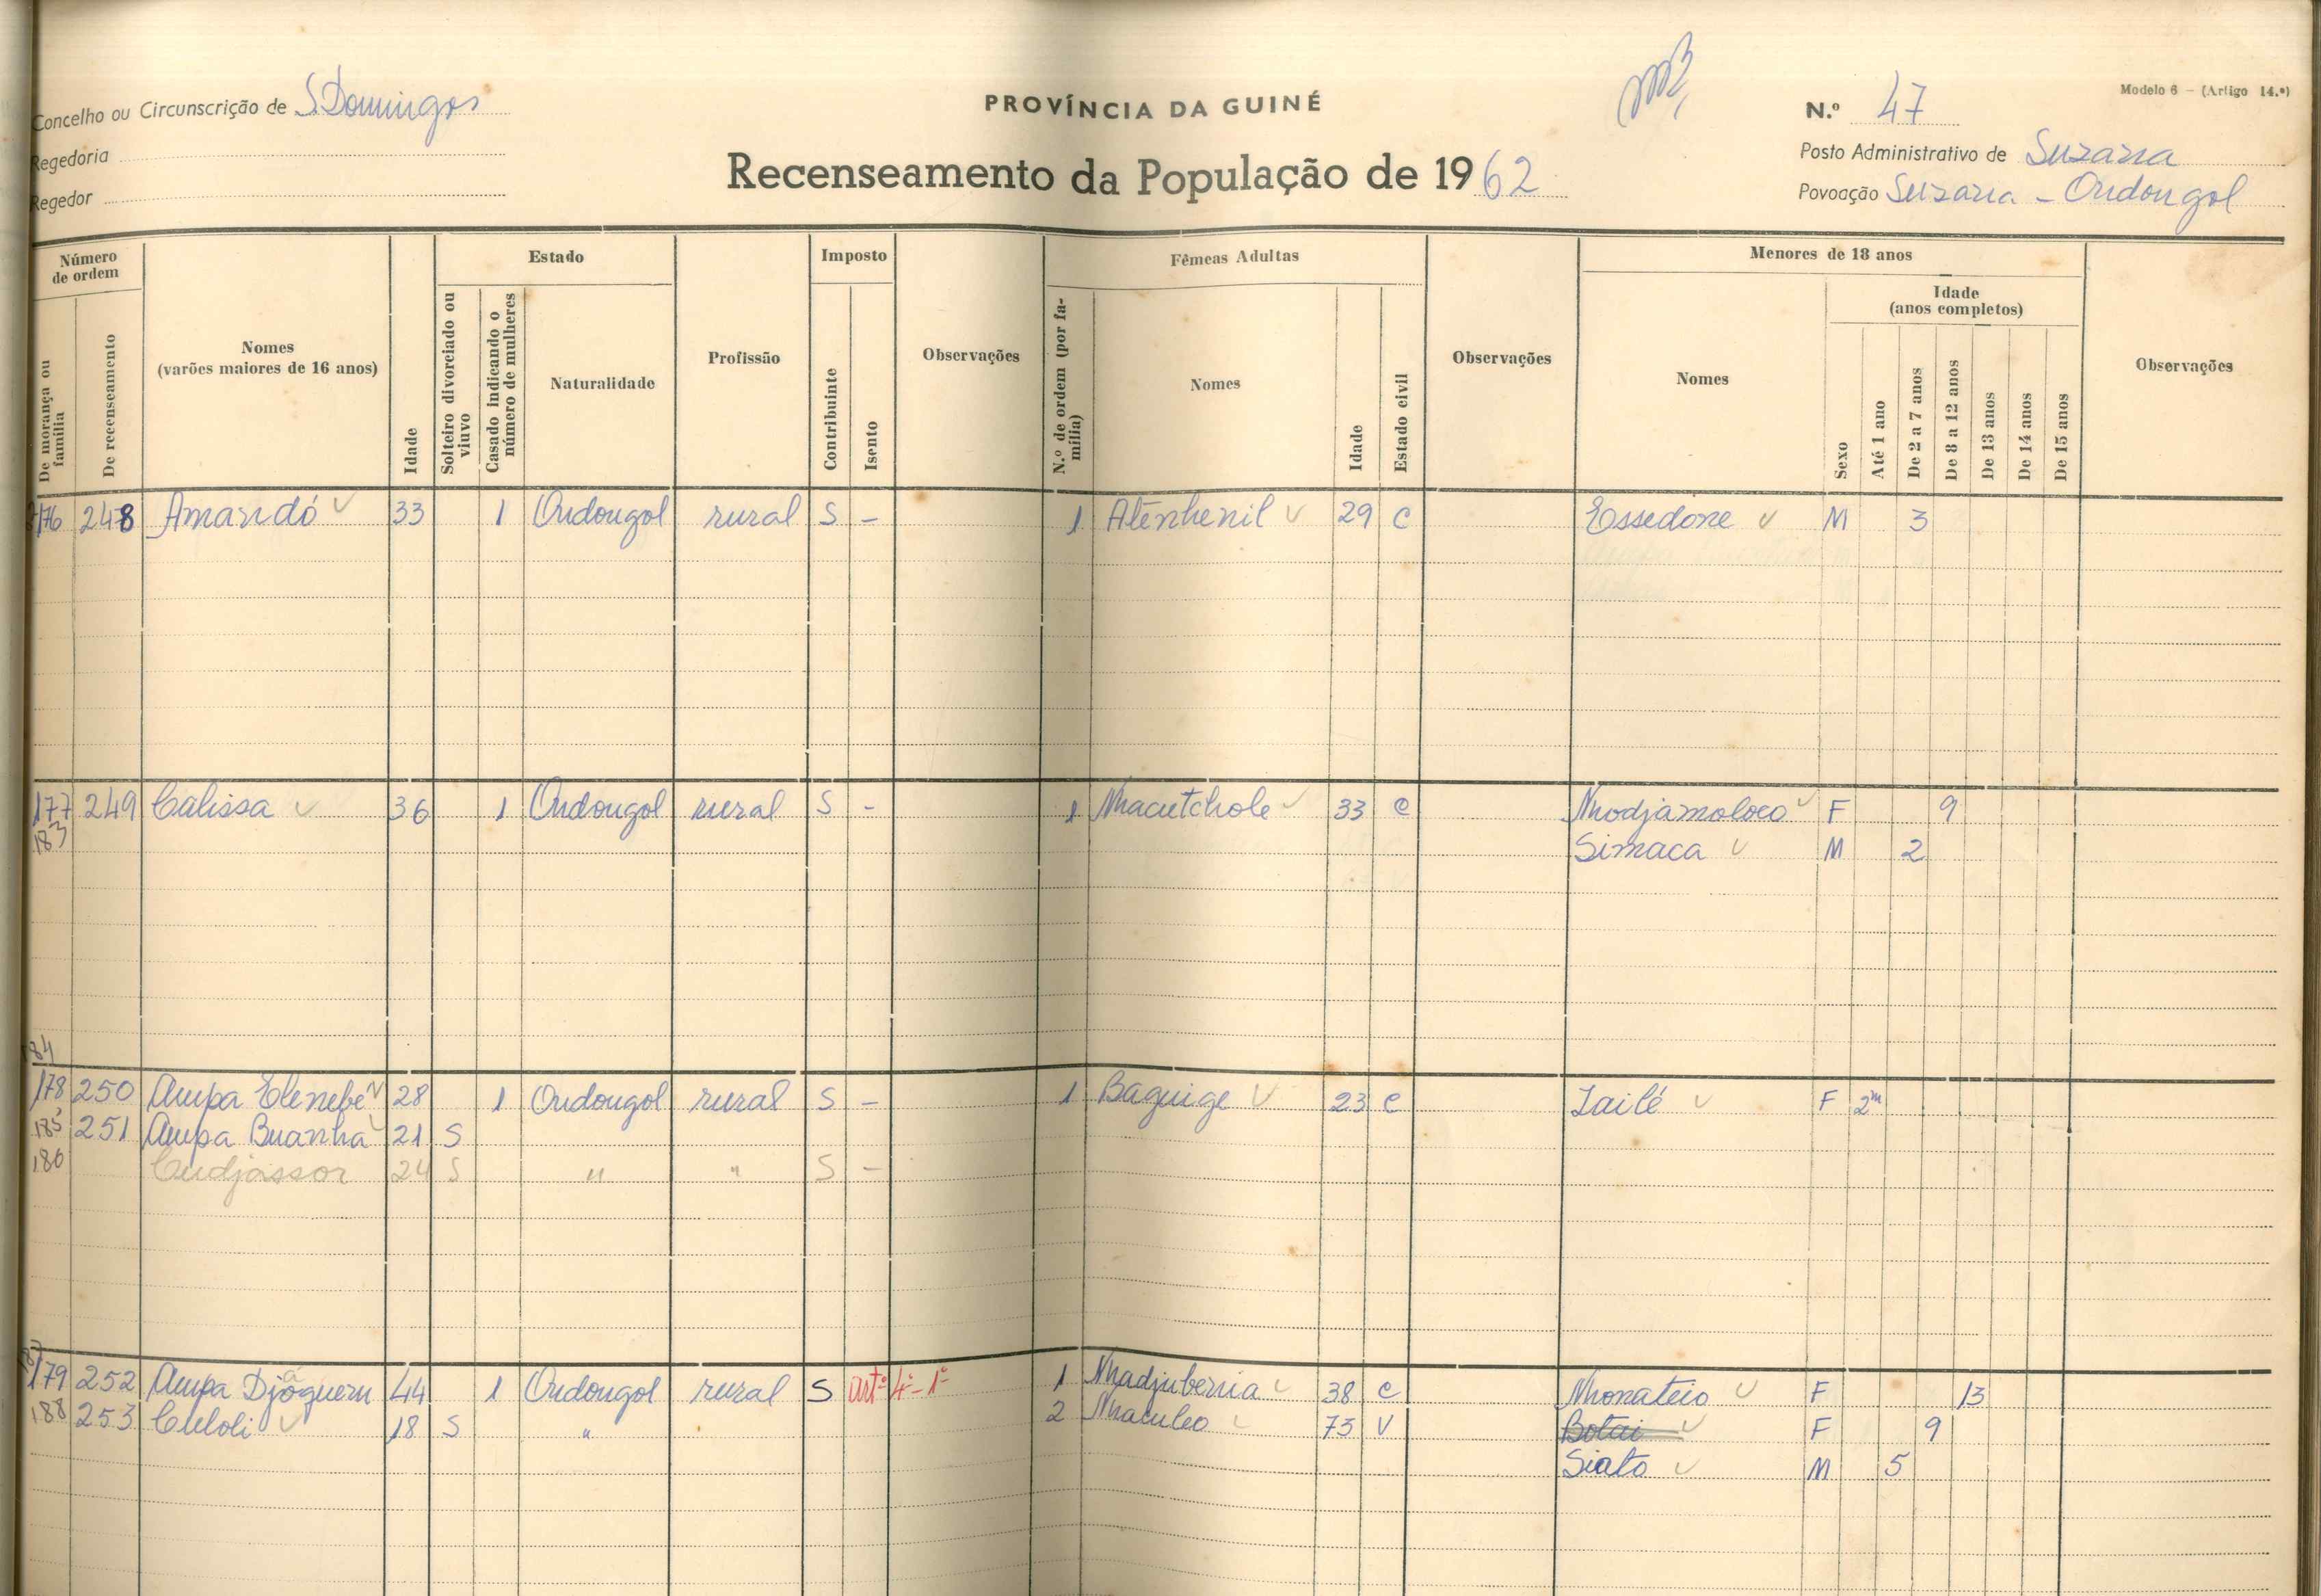 Modelo 6 — (Artigo 14.º)
PROVÍNCIA DA GUINÉ
Concelho ou Circunscrição de S. Domingos
N.º 47
Regedoria
Posto Administrativo de Suzana
Recenseamento da População de 1962
Regedor
Povoação Suzana - Ondongol
Número de ordem
De morança ou família
De recenseamento
Nomes
(varões maiores de 16 anos)
Idade
Estado
Solteiro divorciado ou viuvo
Casado indicando o número de mulheres
Naturalidade
Profissão
Imposto
Contribuinte
Isento
Observações
Fêmeas Adultas
N.º de ordem (por família)
Nomes
Idade
Estado civil
Observações
Menores de 18 anos
Nomes
Sexo
Idade
(anos completos)
Até 1 ano
De 2 a 7 anos
De 8 a 12 anos
De 13 anos
De 14 anos
De 15 anos
Observações
176 248 Amandó 33 1 Ondongol rural S - 1 Atenhenil 29 C Essedone M 3
177 249 Calissa 36 1 Ondongol rural S - 1 Nhacutchole 33 C Nhodjamoloco F 9
183 Simaca M 2
184
178 250 Ampa Elenebé 28 1 Ondongol rural S - 1 Baguige 23 C Lailé F 2m
185 251 Ampa Buanha 21 S
186 Cudjassor 24 S " " S -
179 252 Ampa Djaguem 44 1 Ondongol rural S artº 4º-1º 1 Nhadjubenia 38 C Nhonateio F 13
188 253 Culoli 18 S " 2 Nhaculeo 73 V Botai F 9
Siato M 5